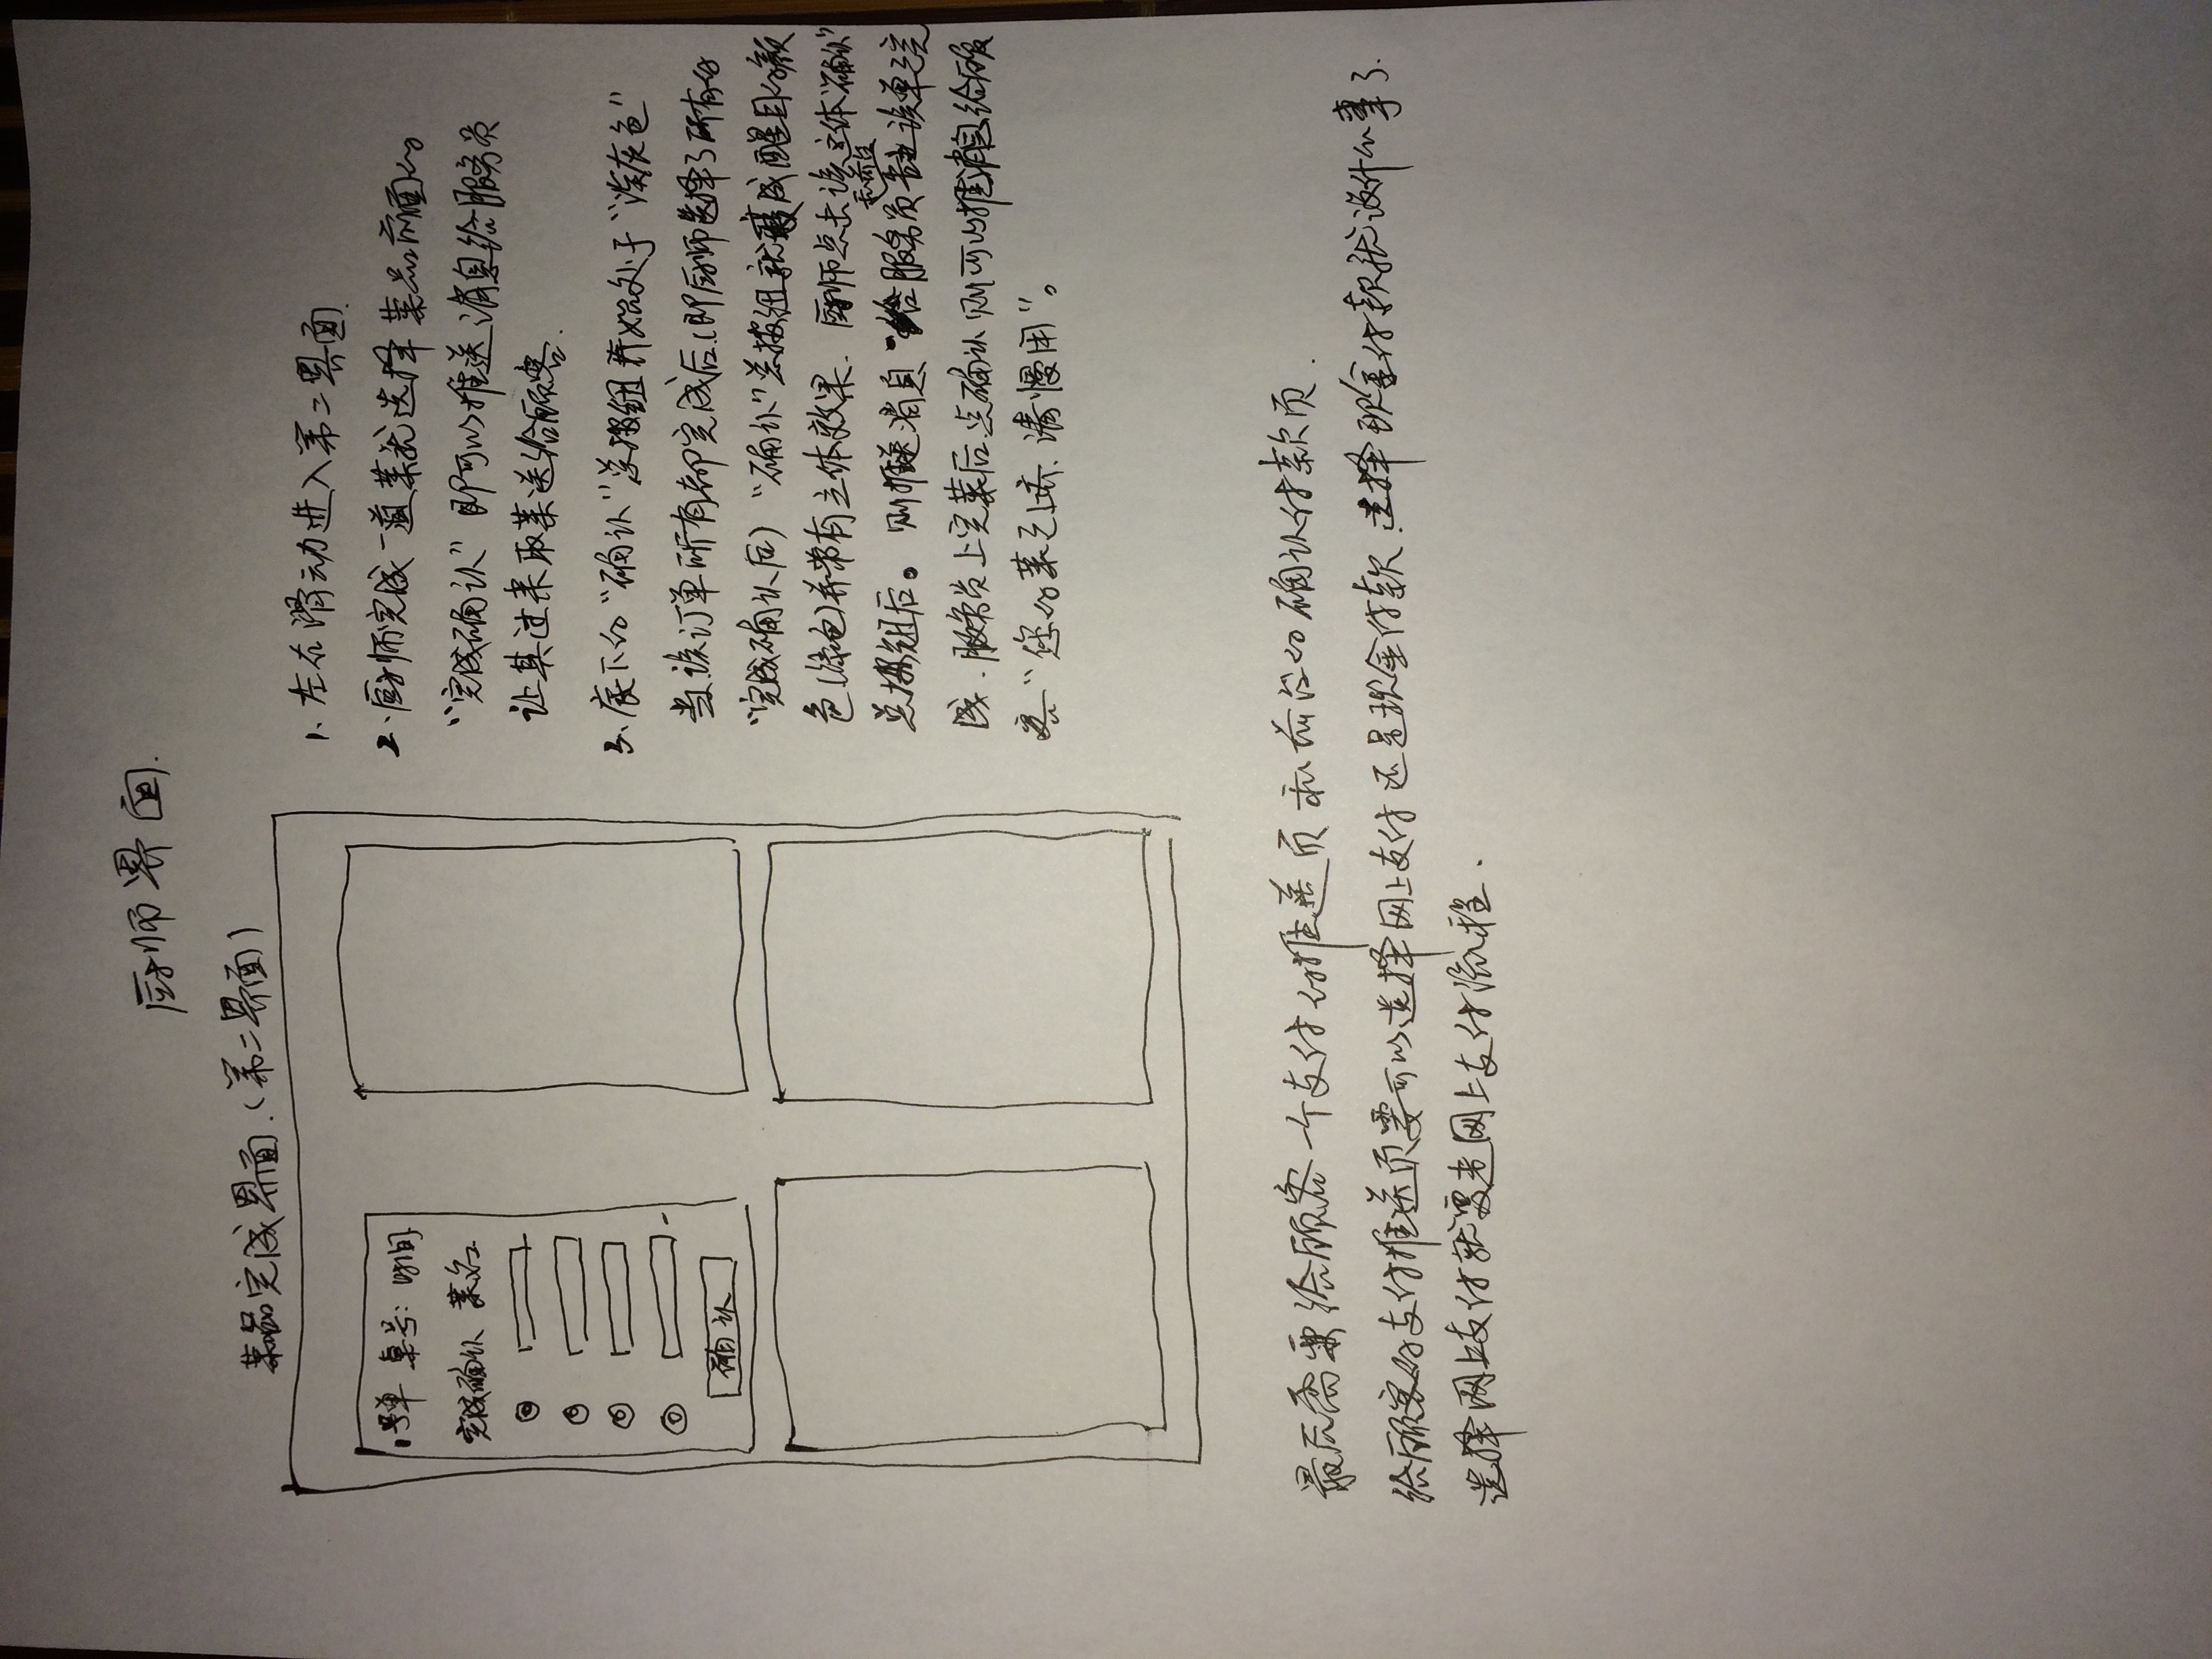 厨师界面.
菜品完成界面.(第二界面)
1号单 桌号: 时间
完成确认 菜名
确认
1、左右滑动进入第二界面.
2、厨师完成一道菜就选择菜品前面的
“完成确认”即可以推送消息给服务员
让其过来取菜送给顾客.
3、底下的“确认”总按钮开始处于“淡灰色”
当该订单所有都完成后.(即厨师选择了所有的
“完成确认后)“确认”总按钮就变成醒目的颜
色(绿色)并带有立体效果. 厨师点击该立体“确认”
和前台
总按钮后。则推送消息给服务员 告知该单已完
成. 服务员上完菜后.点确认则可以推消息给顾
客“您的菜已上齐.请慢用”。
最后需要给顾客一个支付的推送页和前台的确认付款页.
给顾客的支付推送页要可以选择网上支付还是现金付款.选择现金付款就没什么事了.
选择网上支付就要走网上支付流程.